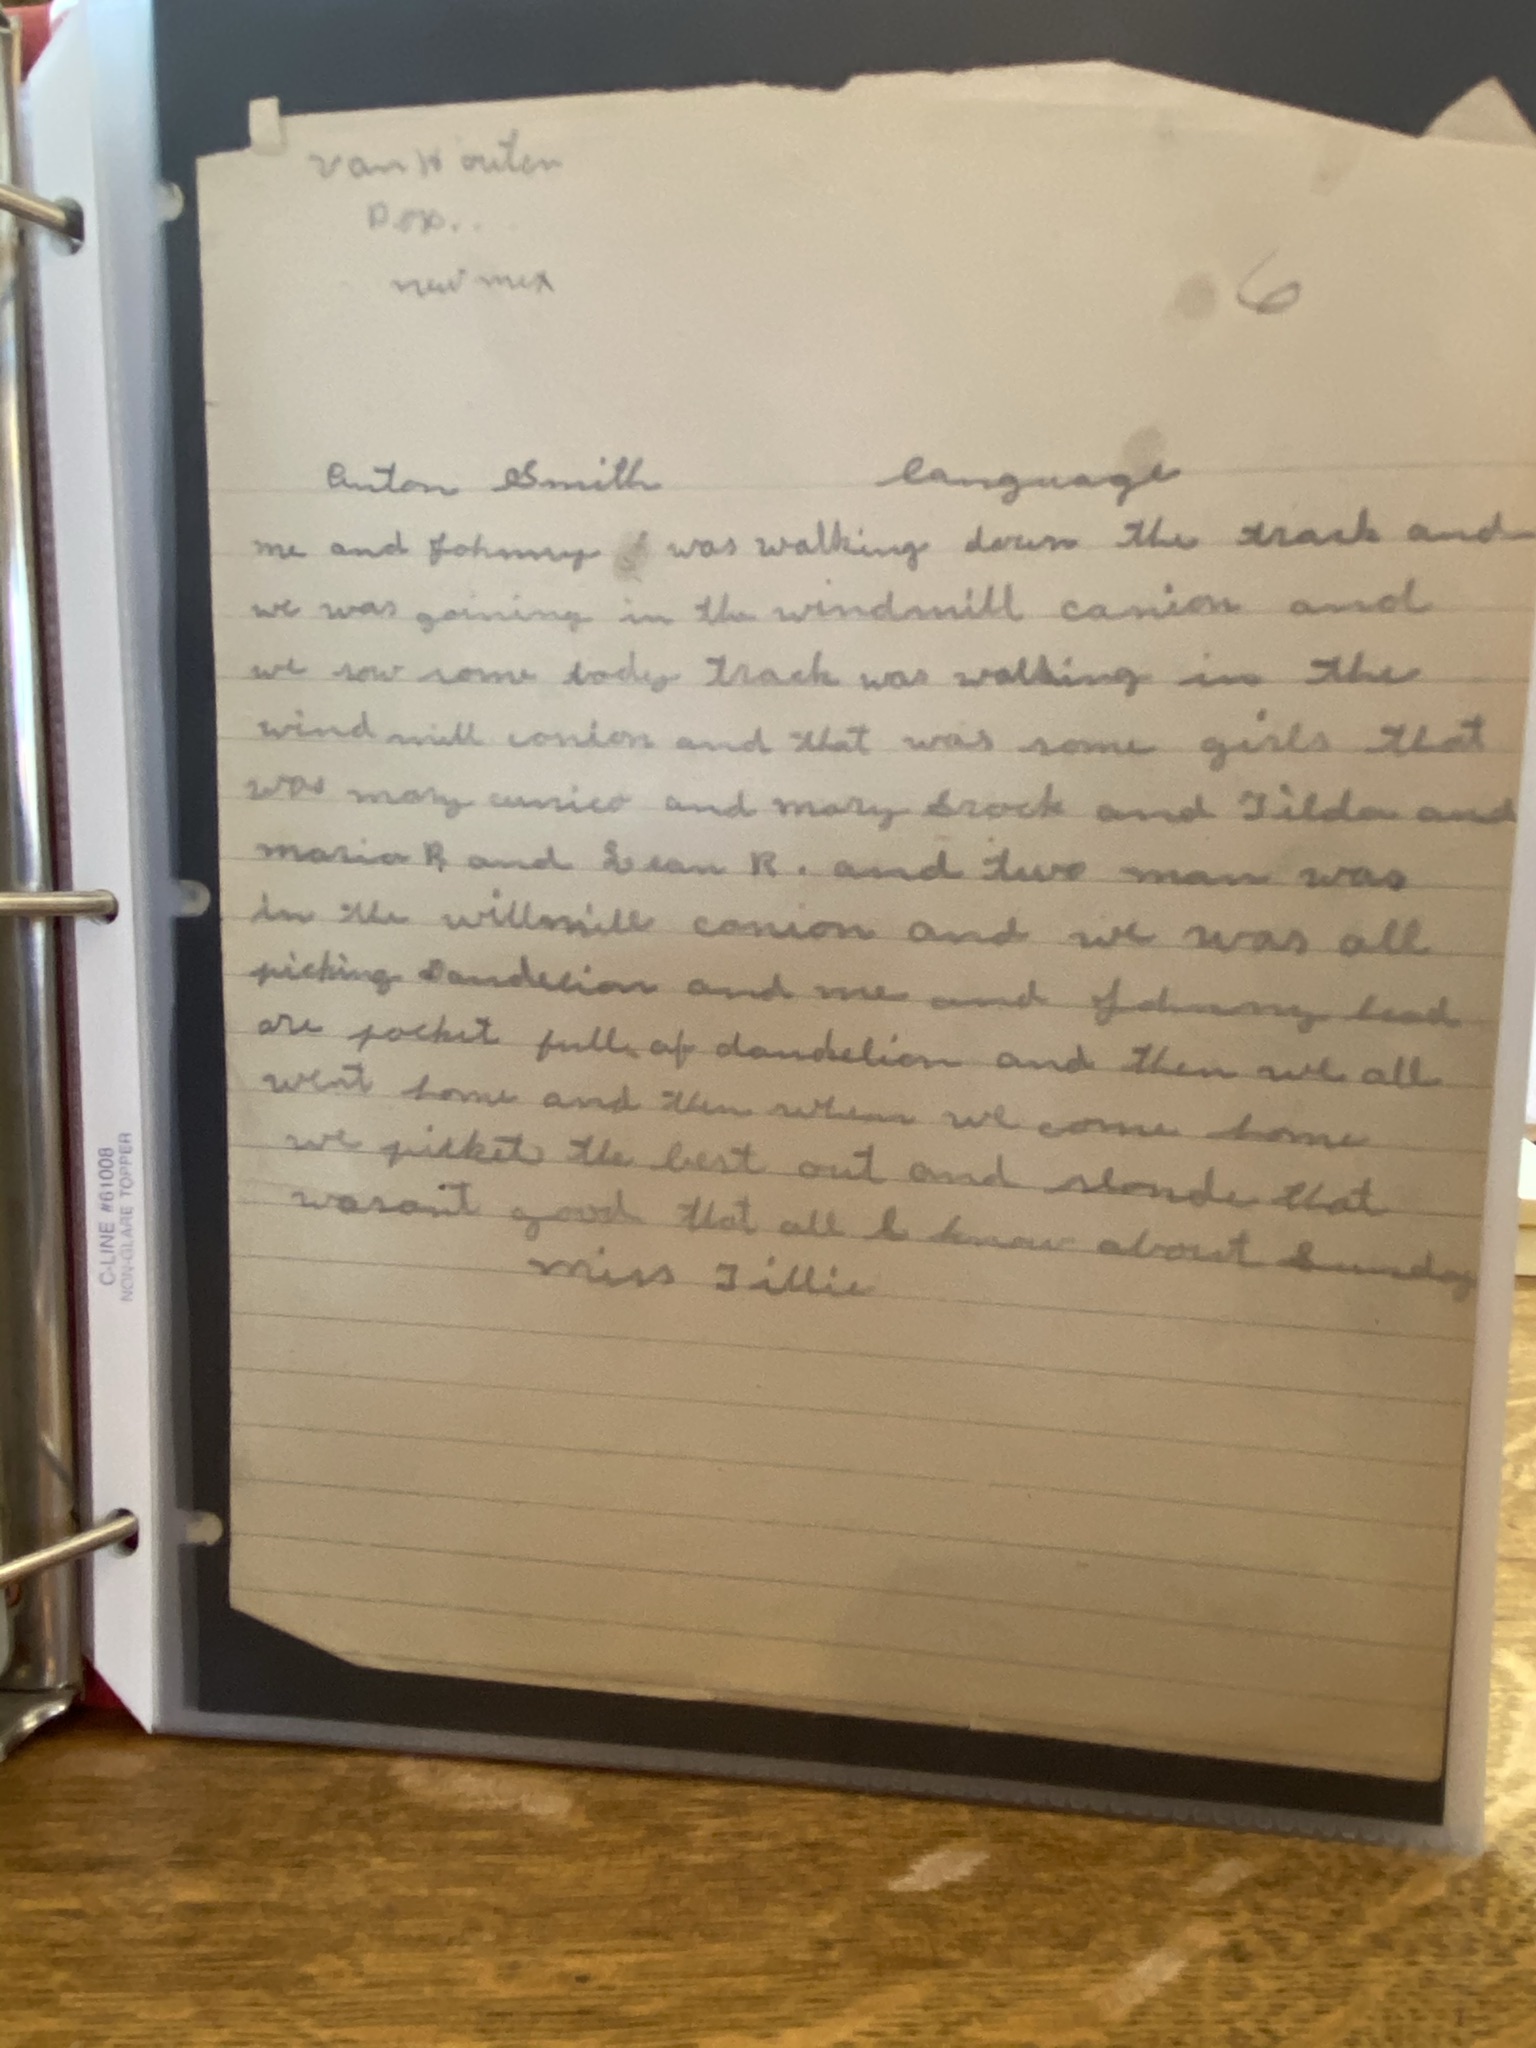 Van Houten
Box..
new mex
6
Anton Smith language
me and Johnny was walking down the track and
we was goining in the windmill canion and
we sow some body track was walking in the
wind mill conion and that was some girls that
was mary cunico and mary Srock and Tilda and
maria R and Lean R. and two man was
in the willmill conion and we was all
picking Dandelion and me and Johnny head
are pocket full of dandelion and then we all
went home and then when we come home
we picket the best out and that
wasant good that all I know about Sunday
Miss Tillie
C-LINE #61008
NON-GLARE TOPPER